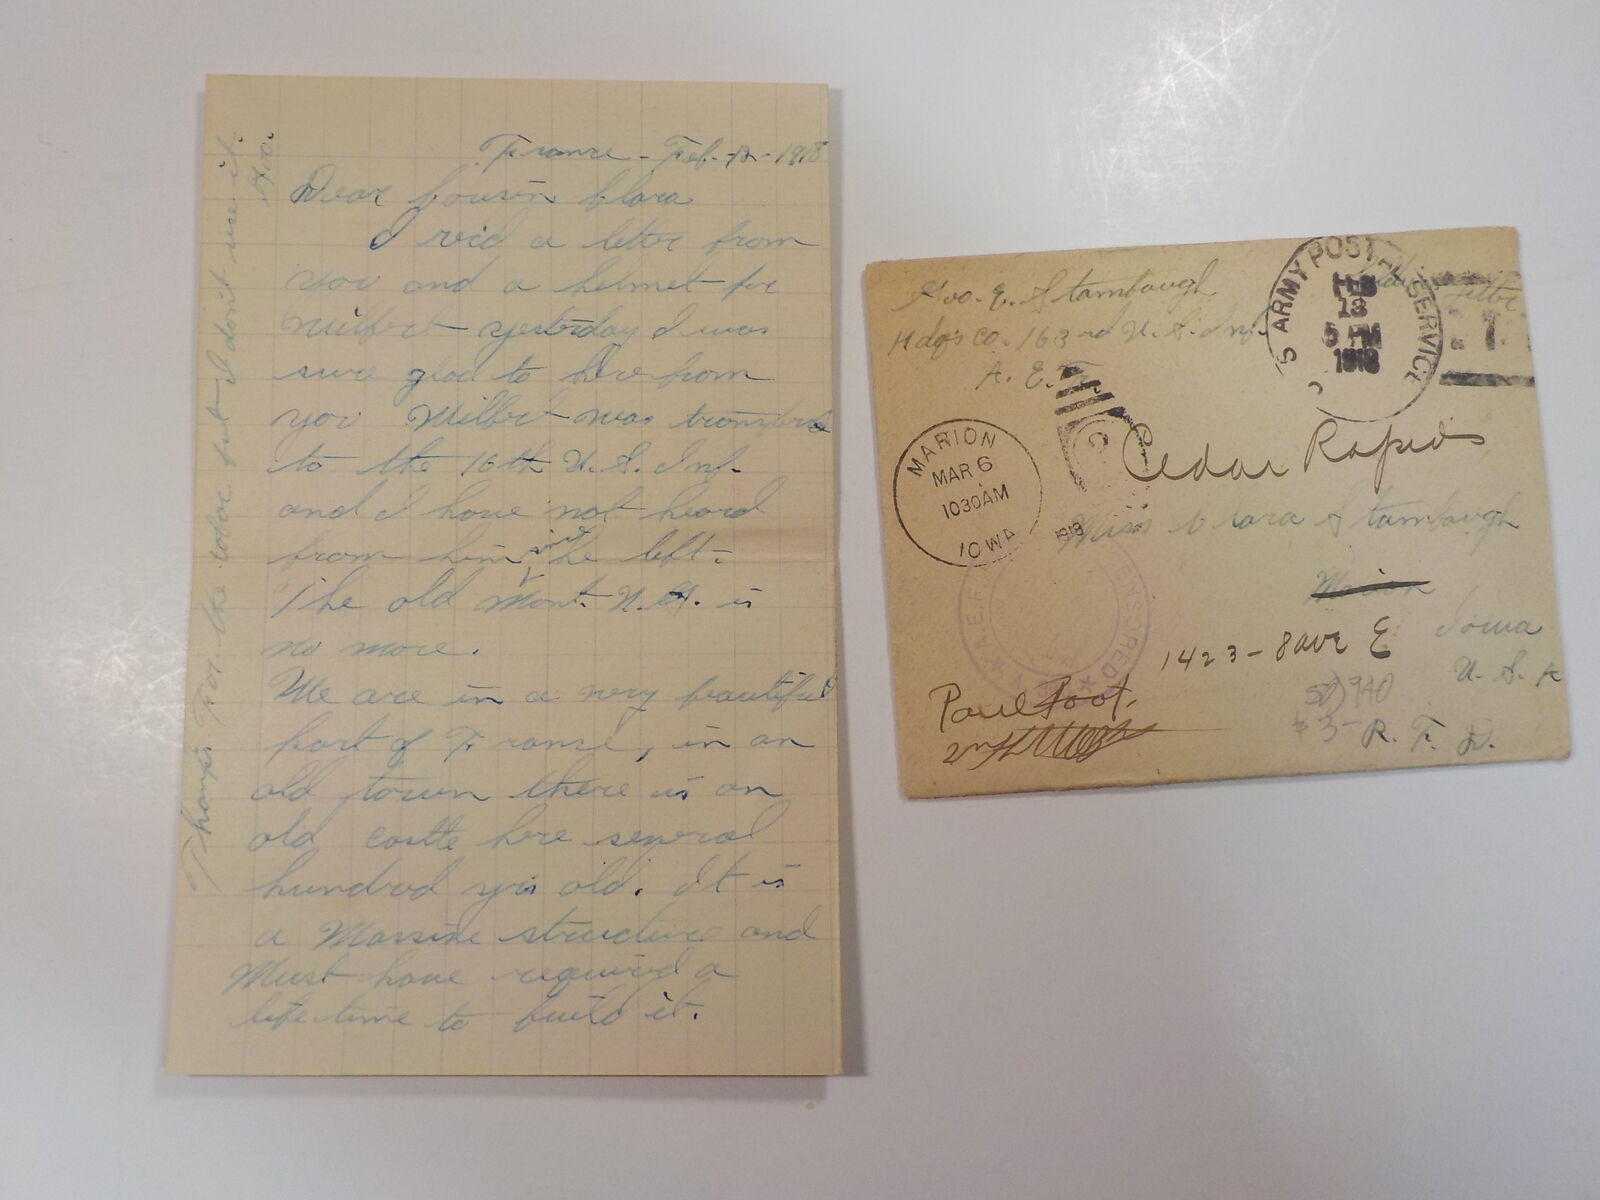 France - Feb. 12 - 1918
Dear Cousin Clara
I rec'd a letter from
you and a helmet for
Milbert yesterday I was
sure glad to here from
you Milbert was transfered
to the 16th U. S. Inf.
and I have not heard
from him since he left.
The old Mont. N. G. is
no more.
We are in a very beautiful
part of France, in an
old town there is an
old castle here several
hundred yrs old. It is
a Massive structure and
Must have required a
life time to build it.
Thanks For the but I don't use it.
Geo.
Geo. E. Stambaugh
Hdqs Co. 163rd U. S. Inf.
A. E. F.
S ARMY POSTAL SERVICE
FEB
13
5 PM
1918
1
MARION
MAR 6
1030AM
IOWA
1918
Cedar Rapids
Miss Clara Stambaugh
Marion
Iowa
1423 - 8 ave E
U. S. A
A.E.F. CENSORED
Paul Foot.
$3-
R. F. D.